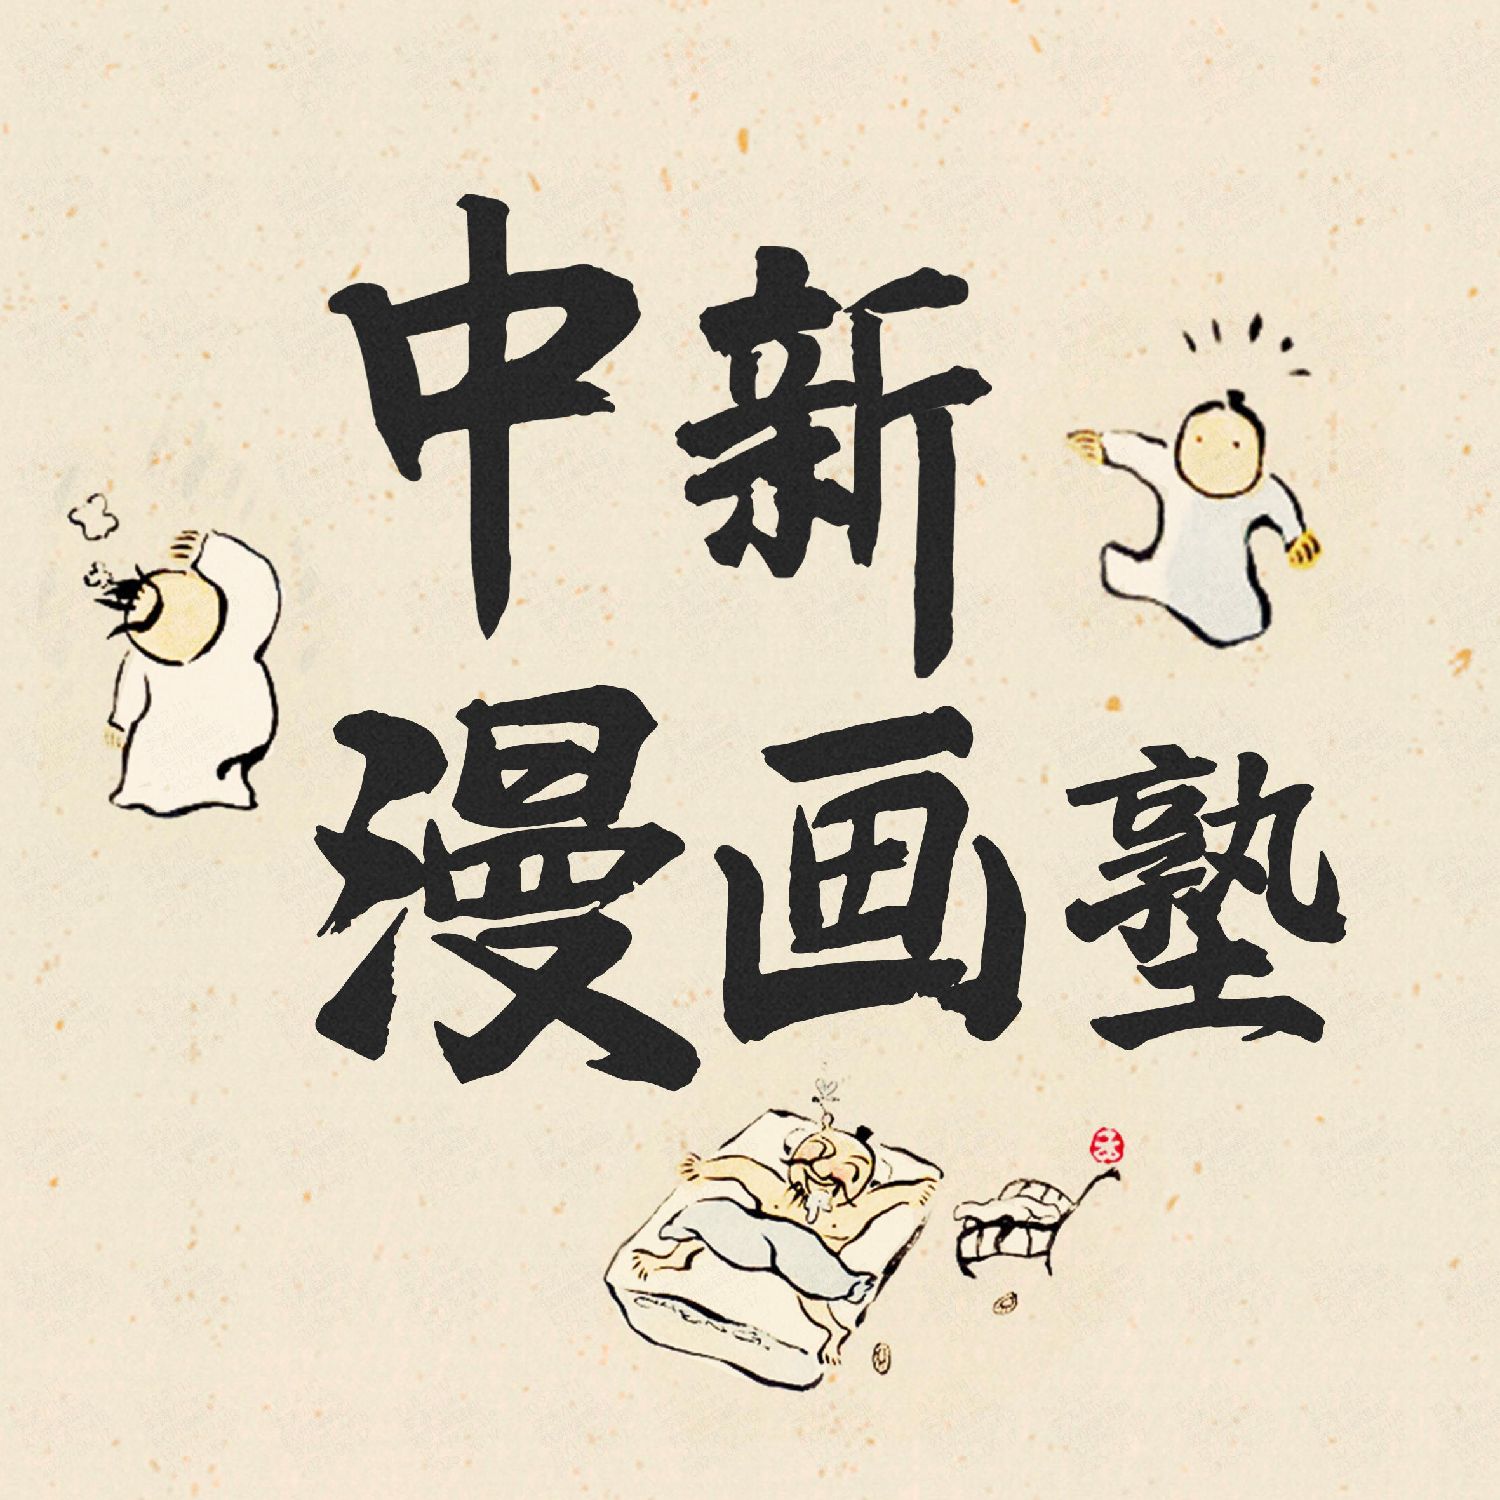 中新
漫画塾